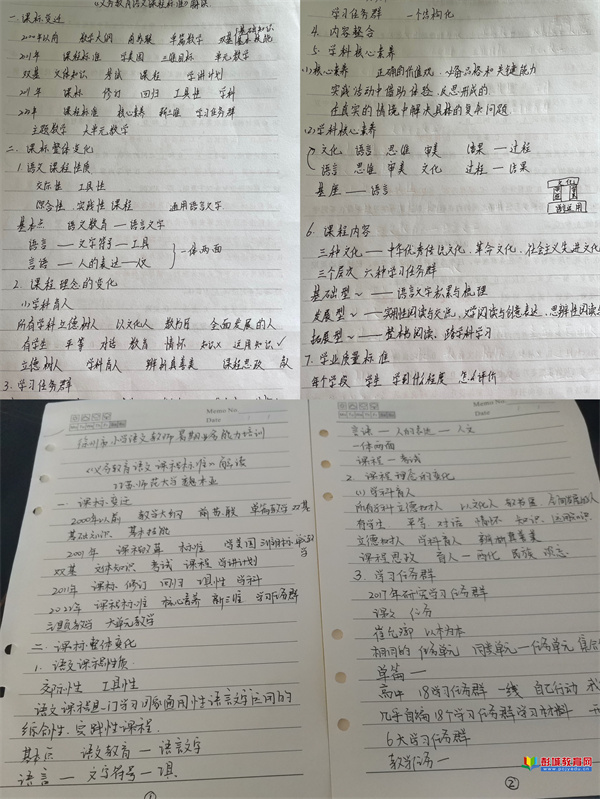 《义务教育语文课程标准》解读
一.课标变迁
2000年以前 教学大纲 前苏联 单篇教学 双基 基础知识 基本技能
2001年 课程标准 学美国 三维目标 单元教学
双基 文体知识 考试 课程 学讲计划
2011年 课标 修订 回归 工具性 学科
2022年 课程标准 核心素养 新三维 学习任务群
主题教学 大单元教学
二.课标整体变化
1.语文课程性质
交际性 工具性
综合性 实践性课程 通用语言文字
基本点 语文教育——语言文字
语言——文字符号——工具
言语——人的表达——人文
一体两面
2.课程理念的变化
(1)学科育人
所有学科立德树人 以文化人 教书育 全面发展的人
有学生 平等 对话 教育 情怀 知识× 运用知识✓
立德树人 学科育人 辨析真善美 课程思政
3.学习任务群
学习任务群 一个结构化
4.内容整合
5.学科核心素养
(1)核心素养 正确的价值观、必备品格和关键能力
实践活动中借助体验、反思形成的
在真实的情境中解决具体的复杂问题
(2)学科核心素养
文化 语言 思维 审美 结果——过程
语言 思维 审美 文化 过程——结果
基层——语言
文化
语言运用
6.课程内容
三种文化——中华优秀传统文化、革命文化、社会主义先进文化
三个层次 六种学习任务群
基础型~——语言文字积累与梳理
发展型~——实用性阅读与交流、文学阅读与创意表达、思辨性阅读与
拓展型~——整本书阅读、跨学科学习
7.学业质量标准
每个学段 学生 学到什么程度 怎么评价
Memo No.
Date
徐州市小学语文教师暑期业务能力培训
《义务教育语文课程标准》解读
江苏师范大学 魏本亚
一 课标变迁
2000年以前 教学大纲 前苏联 单篇教学 双基
基础知识 基本技能
2001年 课程改革 标准 学美国 三维目标 单元教学
双基 文体知识 考试 课程 学讲计划
2011年 课标 修订 回归 工具性 学科
2022年 课程标准 核心素养 新三维 学习任务群
主题教学 大单元教学
二.课标整体变化
1.语文课程性质
交际性 工具性
语文课程是一门学习国家通用性语言文字运用的
综合性、实践性课程
基本点 语文教育——语言文字
语言——文字符号——工具
①
Memo No.
Date
言语——人的表达——人文
一体两面
课程——考试
2 课程理念的变化
(1)学科育人
所有学科立德树人 以文化人 教书育 全面发展的人
有学生 平等 对话 情怀 知识 运用知识
立德树人 学科育人 辨析真善美
课程思政 育人——文化 民族 状态
3.学习任务群
2017年研究学习任务群
课文 任务
崔允漷 以本为本
相同的 任务单元 同类单元——任务单元 集合
单篇——
高中 18学习任务群 一线 自己行动
几乎自编18个学习任务群学习材料
6大学习任务群
教学任务——
②
彭城教育网